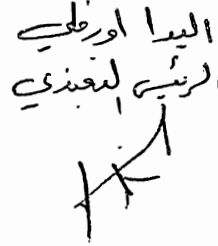 اليدا اورفلي
الرئيس التنفيذي